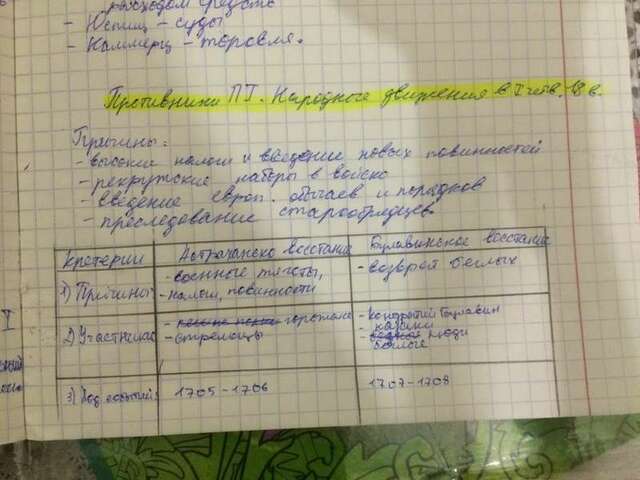 расходом средств
- Юстиц - суды
- Каммерц - торовля.
Противники ПI. Народные движения в I четв. 18 в.
Причины:
- высокие налоги и введение новых повинностей
- рекрутские наборы в войско
- введение европ. обычаев и порядков
- преследование старообрядцев
Кретерии Астраханско восстание Булавинское восстание
1) Причины - военные тяготы, - возврат беглых
- налоги, повинности
2) Участники - горожане - Кондратий Булавин
- стрельцы - казаки
- люди
беглые
3) Ход событий 1705-1706 1707-1708
I